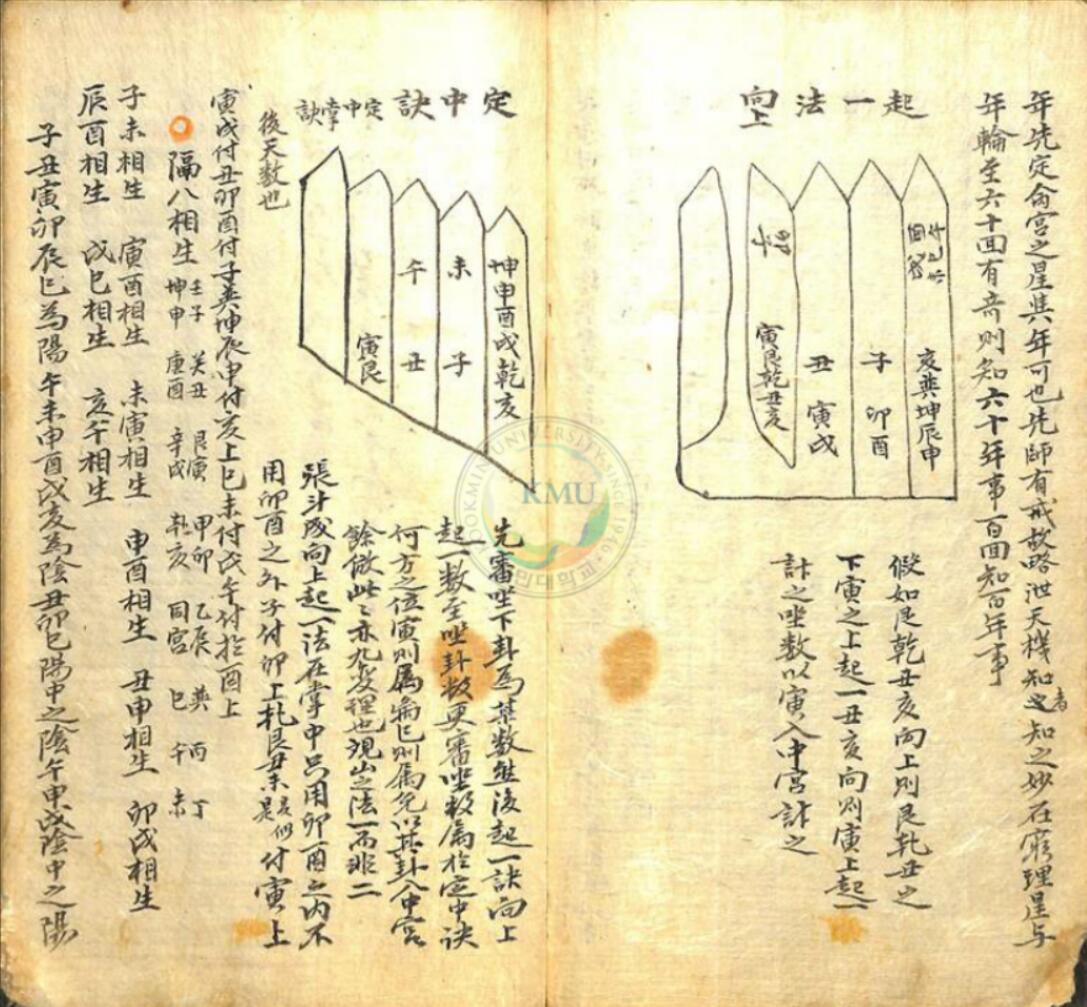 年先定命宮之星其年可也先師有戒故略泄天機知之者知之妙在窮理星与
年輪至六十回有奇則知六十年事百回知百年事
起一法向上
亥巽坤辰申
子 卯酉
丑 寅戌
寅艮乾丑亥
假如艮乾丑亥向上則艮乾丑之
下寅之上起一丑亥向則寅上起一
計之坐數以寅入中宮計之
定中訣 定中掌訣
坤申酉戌乾亥
未 子
午 丑
寅艮
後天數也
先審坐下卦爲某數然後起一訣向上
起一數至坐卦数更審坐数属於定中訣
何方之位寅則属 巳則属兌以其卦入中宮
餘倣此此亦九变理也現山之法一而非二
張斗成向上起一法在掌中只用卯酉之内不
用卯酉之外子付卯上乾艮 付寅上
寅戌付丑卯酉付子巽坤辰申付亥上巳未付戌午付於酉上
隔八相生 壬子 癸丑 艮寅 甲卯 乙辰 巽 丙 丁
坤申 庚酉 辛戌 乾亥 同宮 巳 午 未
子未相生 寅酉相生 未寅相生 申酉相生 丑申相生 卯戌相生
辰酉相生 戌巳相生 亥午相生
子丑寅卯辰巳為陽午未申酉戌亥為陰丑卯巳陽中之陰午申戌陰中之陽
KOOKMIN UNIVERSITY SINCE 1946
KMU
국민대학교